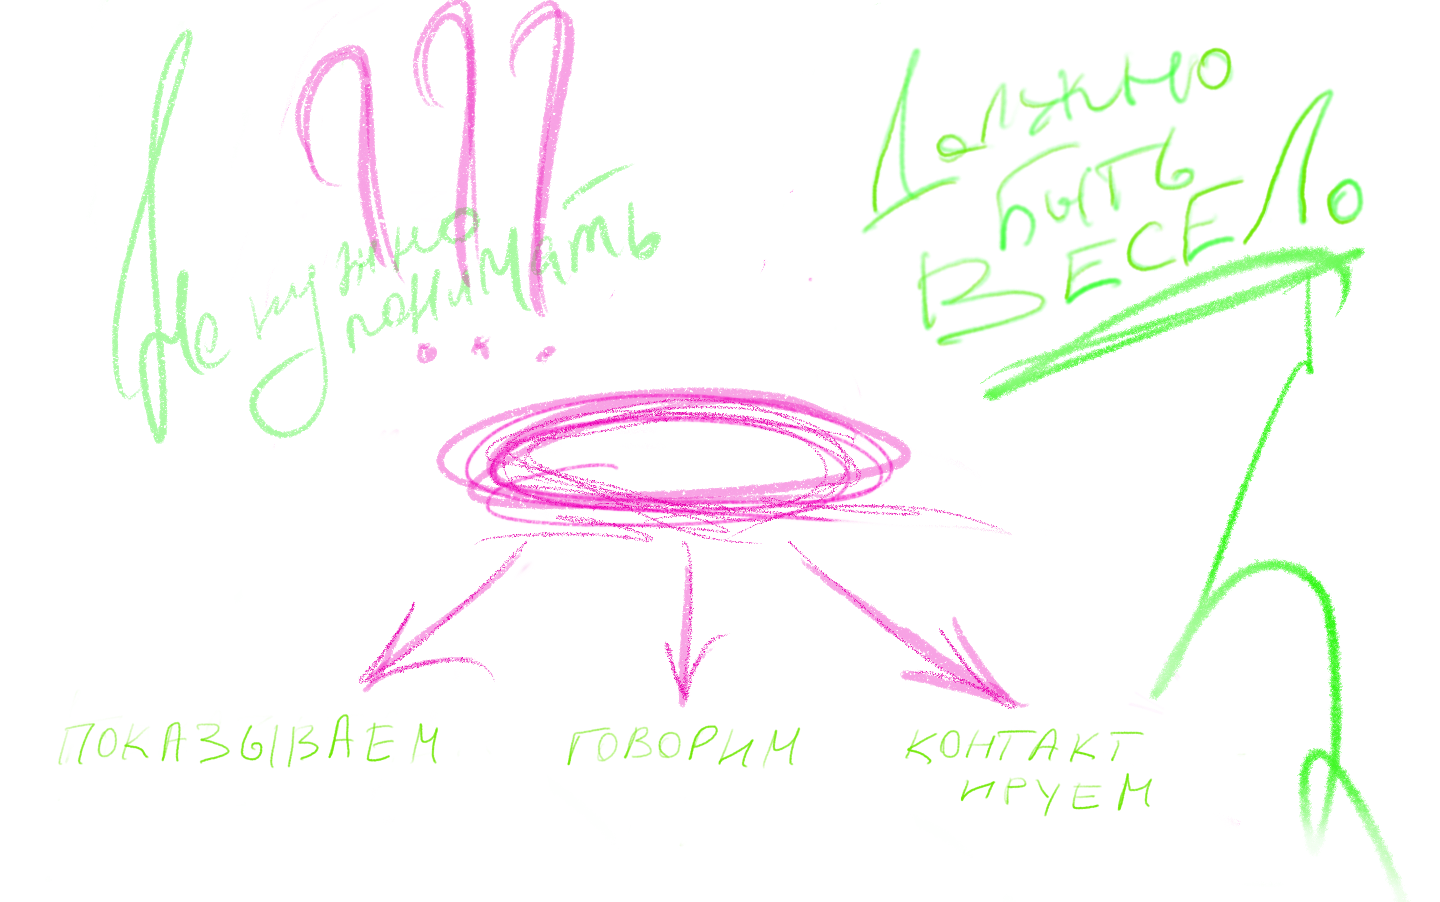 Не нужно
понимать
???
Должно
быть
ВЕСЕЛо
ПОКАЗЫВАЕМ
ГОВОРИМ
КОНТАКТ
ИРУЕМ